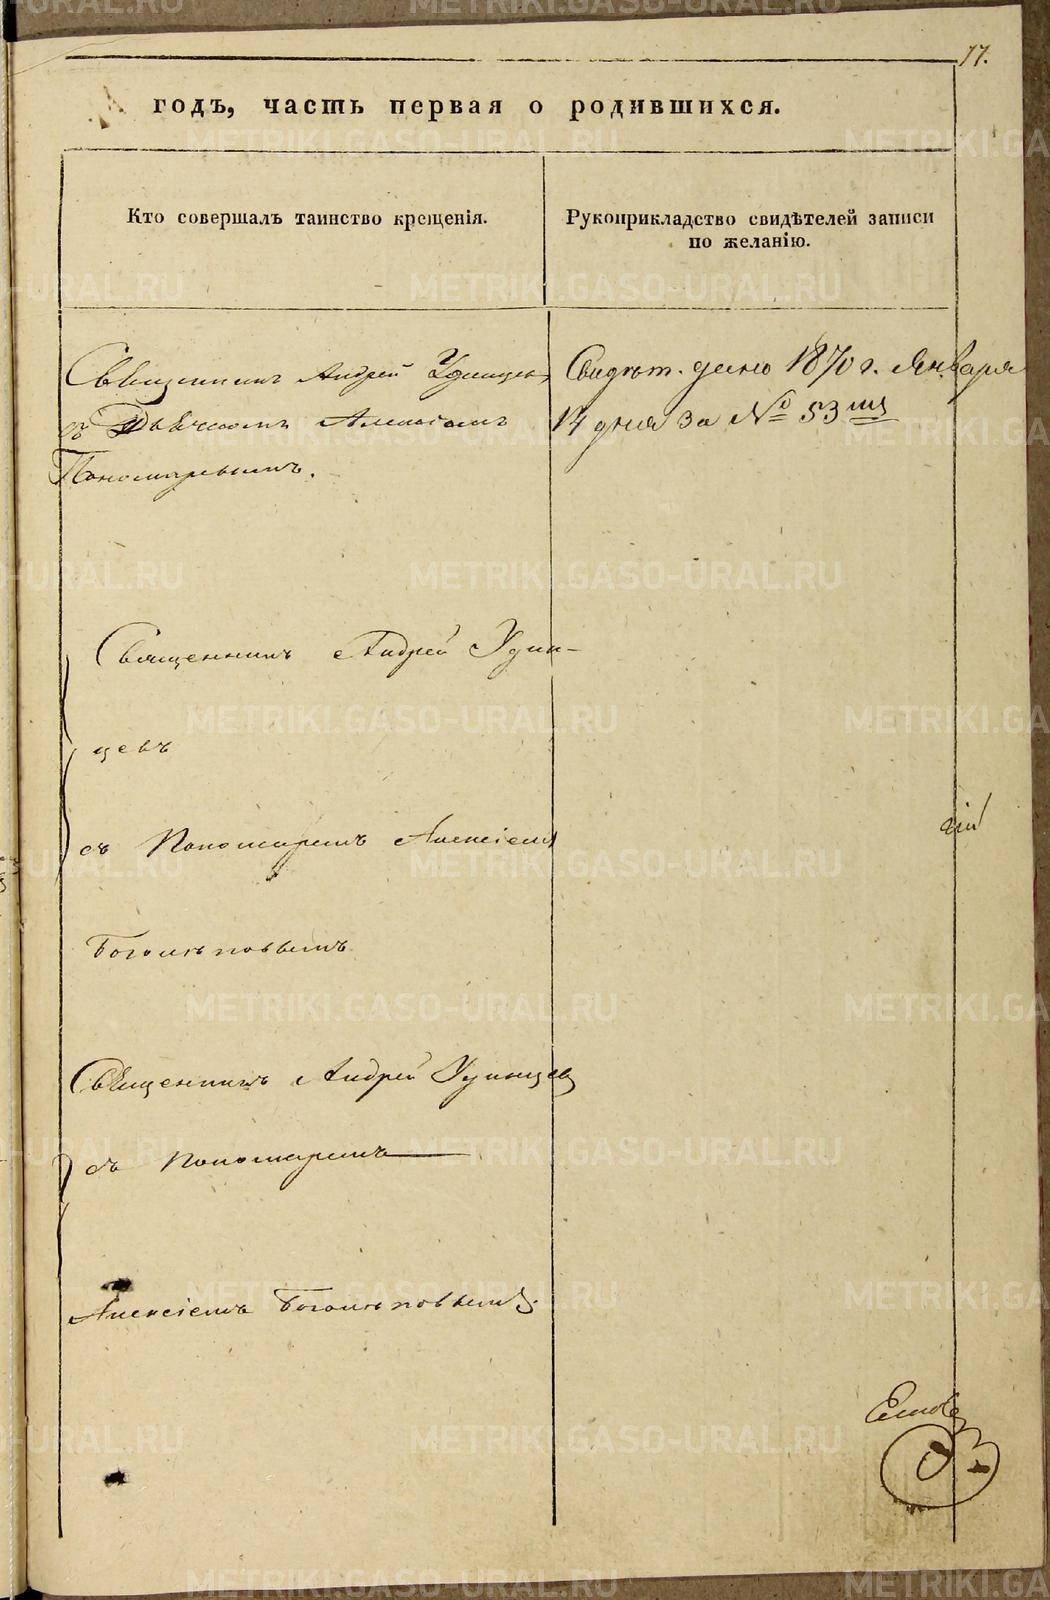 17.
годъ, часть первая о родившихся.
Кто совершалъ таинство крещенія.
Рукоприкладство свидѣтелей записи
по желанію.
Священникъ Андрей Удинцевъ
съ Дьячкомъ Алексѣемъ
Пономаревымъ.
Свидѣт. дано 1870 г. Января
14 дня за № 53
Священникъ Андрей Удин-
цевъ
съ Пономаремъ Алексіемъ
Боголѣповымъ
Священникъ Андрей Удинцев
съ Пономаремъ
Алексіемъ Боголѣповымъ.
METRIKI.GASO-URAL.RU